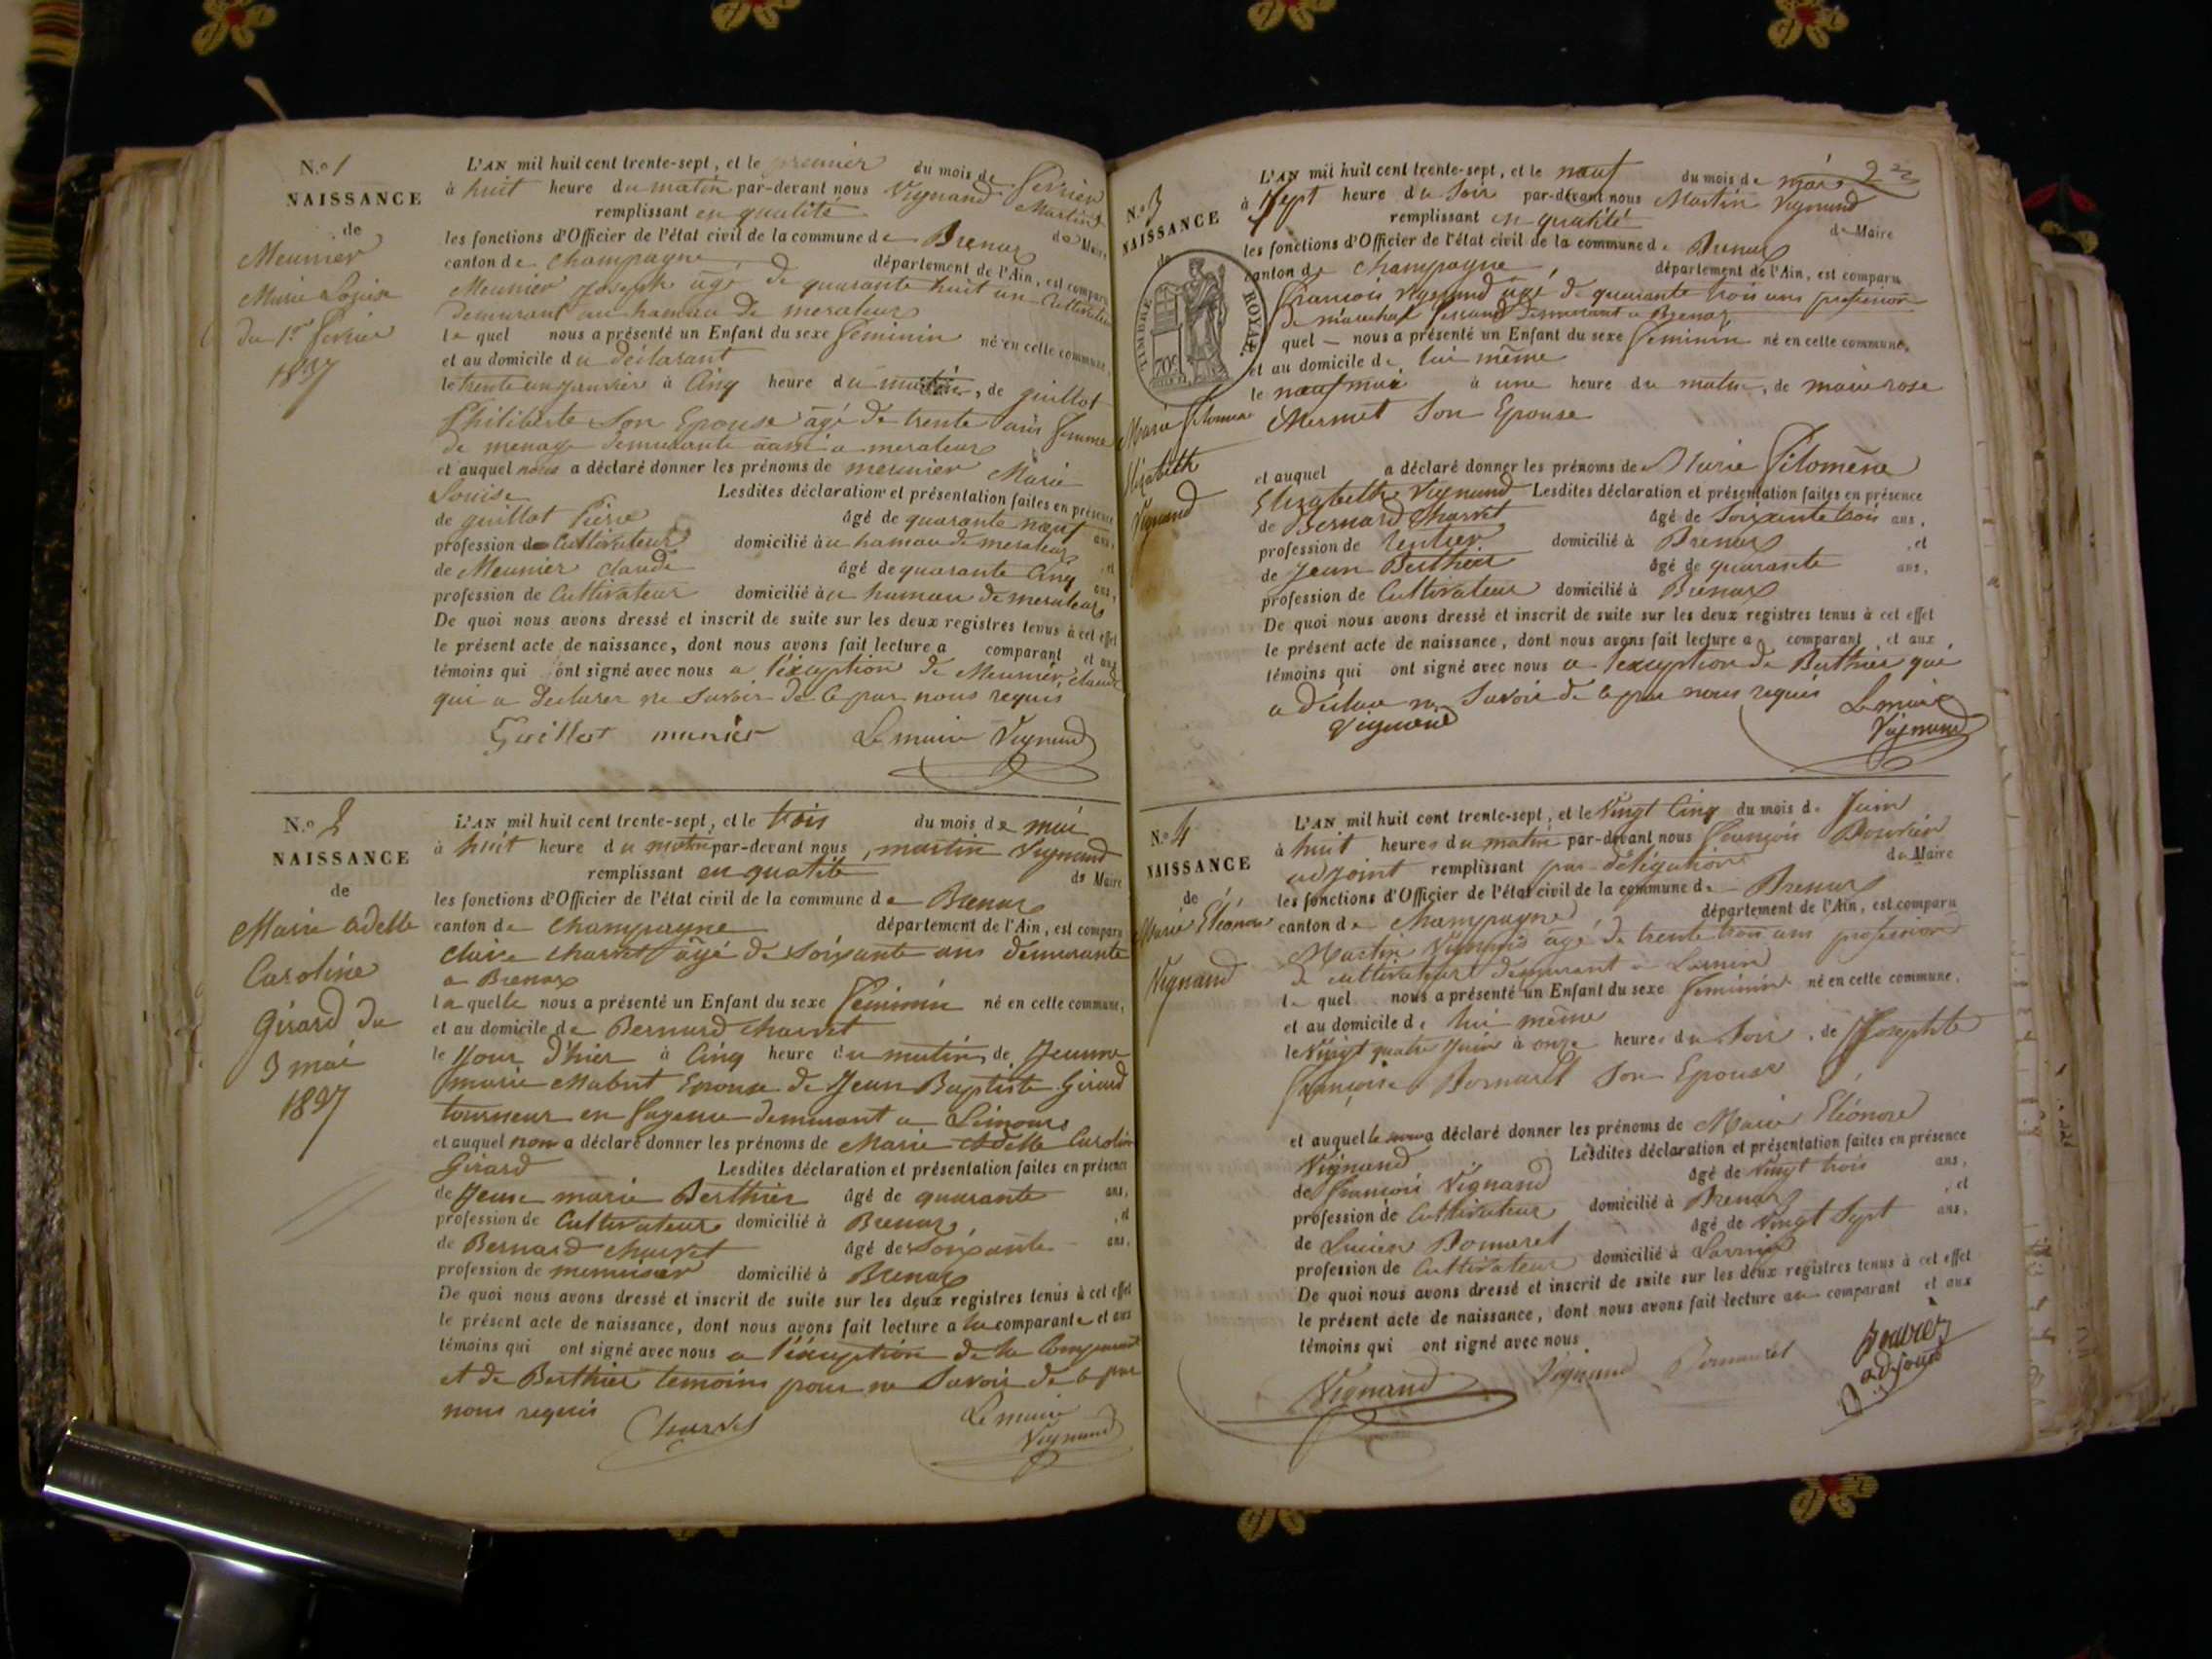 N.o 1
NAISSANCE
de
Meunier
Marie Louise
du 1er fevrier
1837
L'AN mil huit cent trente-sept, et le premier du mois de fevrier
à huit heure du matin par-devant nous Vignand Martin
remplissant en qualité de Maire
les fonctions d'Officier de l'état civil de la commune de Brenaz
canton de champagne département de l'Ain, est comparu
Meunier Joseph agé de quarante huit an Cultivateur
demurant au hamau de meraleaz
le quel nous a présenté un Enfant du sexe feminin né en cette commune,
et au domicile du déclarant
le trente un janvier à Cinq heure du matin, de guillot
Philiberte Son Epouse agé de trente ans femme
de menage demurante aussi a meraleaz
et auquel nous a déclaré donner les prénoms de meunier Marie
Louise Lesdites déclaration et présentation faites en présence
de guillot Pierre âgé de quarante neuf ans,
profession de Cultivateur domicilié àu hamau de meraleaz, et
de Meunier claude âgé de quarante Cinq ans,
profession de Cultivateur domicilié àu hamau de meraleaz
De quoi nous avons dressé et inscrit de suite sur les deux registres tenus à cet effet
le présent acte de naissance, dont nous avons fait lecture a comparant et aux
témoins qui ont signé avec nous a l'éxception de Meunier claude
qui a declarer ne Savoir de ce par nous requis
Guillot munier Le maire Vignand
N.o 2
NAISSANCE
de
Marie adelle
Caroline
Girard du
3 mai
1837
L'AN mil huit cent trente-sept, et le trois du mois de mai
à huit heure du matin par-devant nous, martin Vignand
remplissant en qualité de Maire
les fonctions d'Officier de l'état civil de la commune de Brenaz
canton de champagne département de l'Ain, est comparu
claire charvet agé de soixante ans demurante
a Brenaz
laquelle nous a présenté un Enfant du sexe feminin né en cette commune,
et au domicile de Bernard charvet
le Jour d'hier à Cinq heure du matin, de Jeanne
marie Mabut Epouse de Jean Baptiste Girard
tourneur en fayence demurant a
et auquel nous a déclaré donner les prénoms de Marie Adelle Caroline
Girard Lesdites déclaration et présentation faites en présence
de Jean marie Berthier âgé de quarante ans,
profession de Cultivateur domicilié à Brenaz, et
de Bernard charvet âgé de Soixante ans,
profession de menuisier domicilié à Brenaz
De quoi nous avons dressé et inscrit de suite sur les deux registres tenus à cet effet
le présent acte de naissance, dont nous avons fait lecture a la comparante et aux
témoins qui ont signé avec nous a l'éxception de la Comparante
et de Berthier temoins pour ne Savoir de ce par
nous requis
Charvet Le maire
Vignand
N.o 3
NAISSANCE
de
TIMBRE ROYAL
70c
Marie filomene
Elizabeth
Vignand
L'AN mil huit cent trente-sept, et le neuf du mois de mai 2
à Sept heure du Soir par-devant nous Martin Vignand
remplissant en qualité de Maire
les fonctions d'Officier de l'état civil de la commune de Brenaz
canton de champagne département de l'Ain, est comparu
francois Vignand agé de quarante trois ans profession
de marechal ferrand demurant a Brenaz
quel nous a présenté un Enfant du sexe feminin né en cette commune,
et au domicile de lui même
le neuf mai à une heure du matin, de marie rose
Mermet Son Epouse
et auquel a déclaré donner les prénoms de Marie filomène
Elizabethe Vignand Lesdites déclaration et présentation faites en présence
de Bernard Charvet âgé de Soixante trois ans,
profession de rentier domicilié à Brenaz, et
de Jean Berthier âgé de quarante ans,
profession de Cultivateur domicilié à Brenaz
De quoi nous avons dressé et inscrit de suite sur les deux registres tenus à cet effet
le présent acte de naissance, dont nous avons fait lecture a comparant et aux
témoins qui ont signé avec nous a l'exception de Berthier qui
a déclare ne Savoir de ce par nous requis Le maire
Vignand Vignand
N.o 4
NAISSANCE
de
Marie Eléonore
Vignand
L'AN mil huit cent trente-sept, et le Vingt Cinq du mois de Juin
à huit heures du matin par-devant nous francois Bouvier
adjoint remplissant par délégation du Maire
les fonctions d'Officier de l'état civil de la commune de Brenaz
canton de champagne département de l'Ain, est comparu
Martin Vignand agé de trente trois ans profession
de cultivateur demurant a
le quel nous a présenté un Enfant du sexe feminin né en cette commune,
et au domicile de lui même
le Vingt quatre Juin à onze heures du Soir, de Josephte
françoise Bornarel Son Epouse
et auquel le nous a déclaré donner les prénoms de Marie Eléonore
Vignand Lesdites déclaration et présentation faites en présence
de francois Vignand âgé de Vingt trois ans,
profession de Cultivateur domicilié à Brenaz, et
de Lucien Bornarel âgé de Vingt Sept ans,
profession de Cultivateur domicilié à
De quoi nous avons dressé et inscrit de suite sur les deux registres tenus à cet effet
le présent acte de naissance, dont nous avons fait lecture au comparant et aux
témoins qui ont signé avec nous
Vignand Vignand Bornarel Bouvier
adjoint